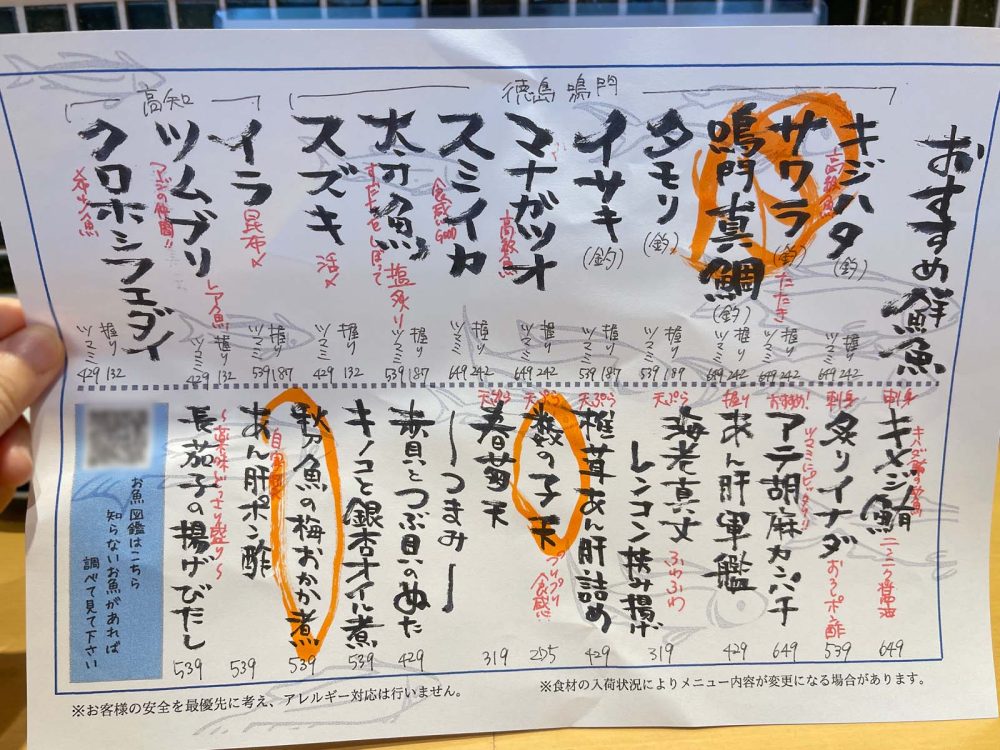 おすすめ鮮魚
徳島 鳴門
キジハタ
高級魚
(釣)
握り 242
ツマミ 649
サワラ
(釣)
たたき
握り 242
ツマミ 649
鳴門真鯛
(釣)
握り 242
ツマミ 649
タモリ
(釣)
握り 187
ツマミ 539
イサキ
(釣)
握り 187
ツマミ 539
マナガツオ
高級魚
握り 242
ツマミ 649
スミイカ
食感GOOD
握り 242
ツマミ 649
太刀魚
すだちをしぼって
塩炙り
握り 187
ツマミ 539
スズキ
活〆
握り 132
ツマミ 429
高知
イラ
昆布〆
握り 187
ツマミ 539
ツムブリ
アジの仲間!!
レア魚
握り 132
ツマミ 429
クロホシフエダイ
握り 132
ツマミ 429
刺身
キメジ鮪
キハダ鮪の幼魚
ニンニク醤油
649
刺身
炙りイナダ
ツマミにピッタリ
おろしポン酢
539
おすすめ!
アテ胡麻カンパチ
649
握り
あん肝軍艦
429
天ぷら
海老真丈
ふわふわ
レンコン挟み揚げ
319
天ぷら
椎茸あん肝詰め
429
天ぷら
数の子天
プリプリ食感
205
天ぷら
春菊天
319
ーつまみー
赤貝とつぶ貝のぬた
429
キノコと銀杏オイル煮
539
秋刀魚の梅おかか煮
539
自家製
あん肝ポン酢
539
長茄子の揚げびたし
539
お魚図鑑はこちら
知らないお魚があれば
調べて見て下さい
※食材の入荷状況によりメニュー内容が変更になる場合があります。
※お客様の安全を最優先に考え、アレルギー対応は行いません。